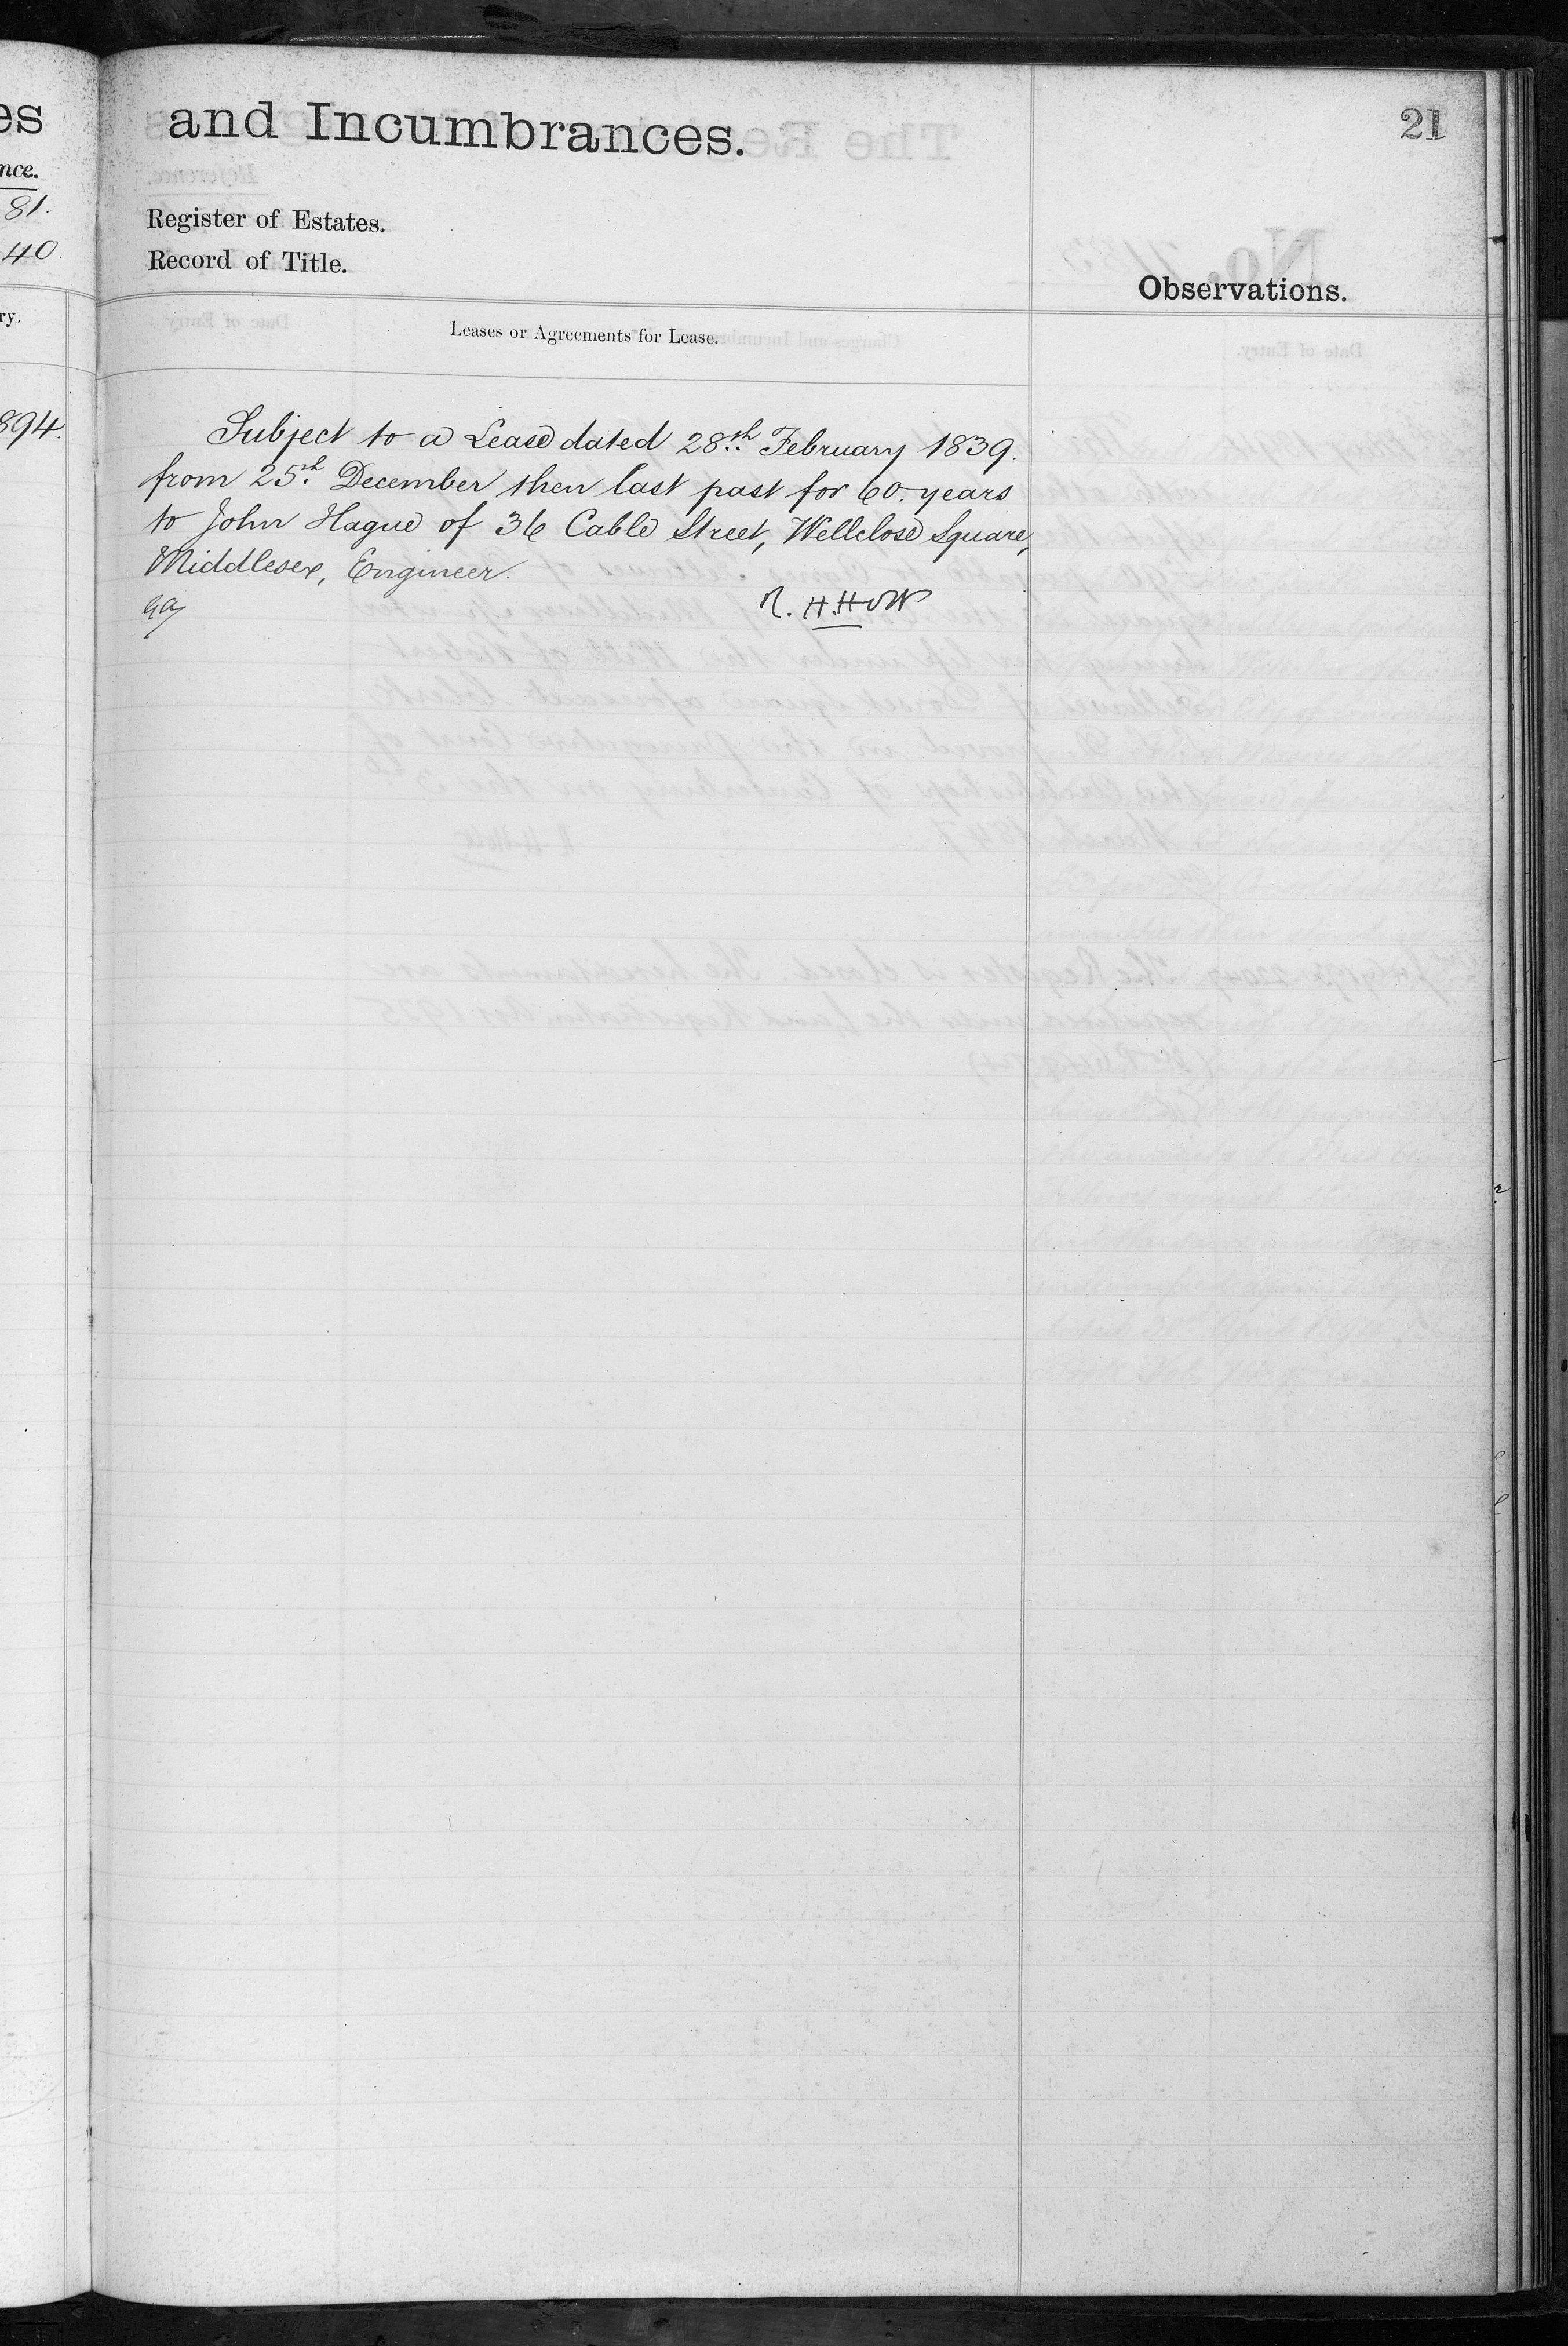 es
nce.
81.
40.
ry.
894.
and Incumbrances.
21
Register of Estates.
Record of Title.
Observations.
Leases or Agreements for Lease.
Subject to a Lease dated 28th February 1839.
from 25th December then last past for 60. years
to John Hague of 36 Cable Street, Wellclose Square,
Middlesex, Engineer.
R. H. Holt